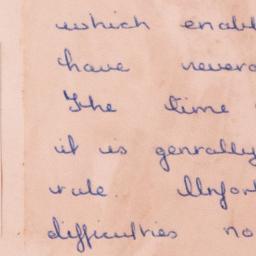 which enabl
have never
The time
it is genrally
rule. Unfor
difficulties no